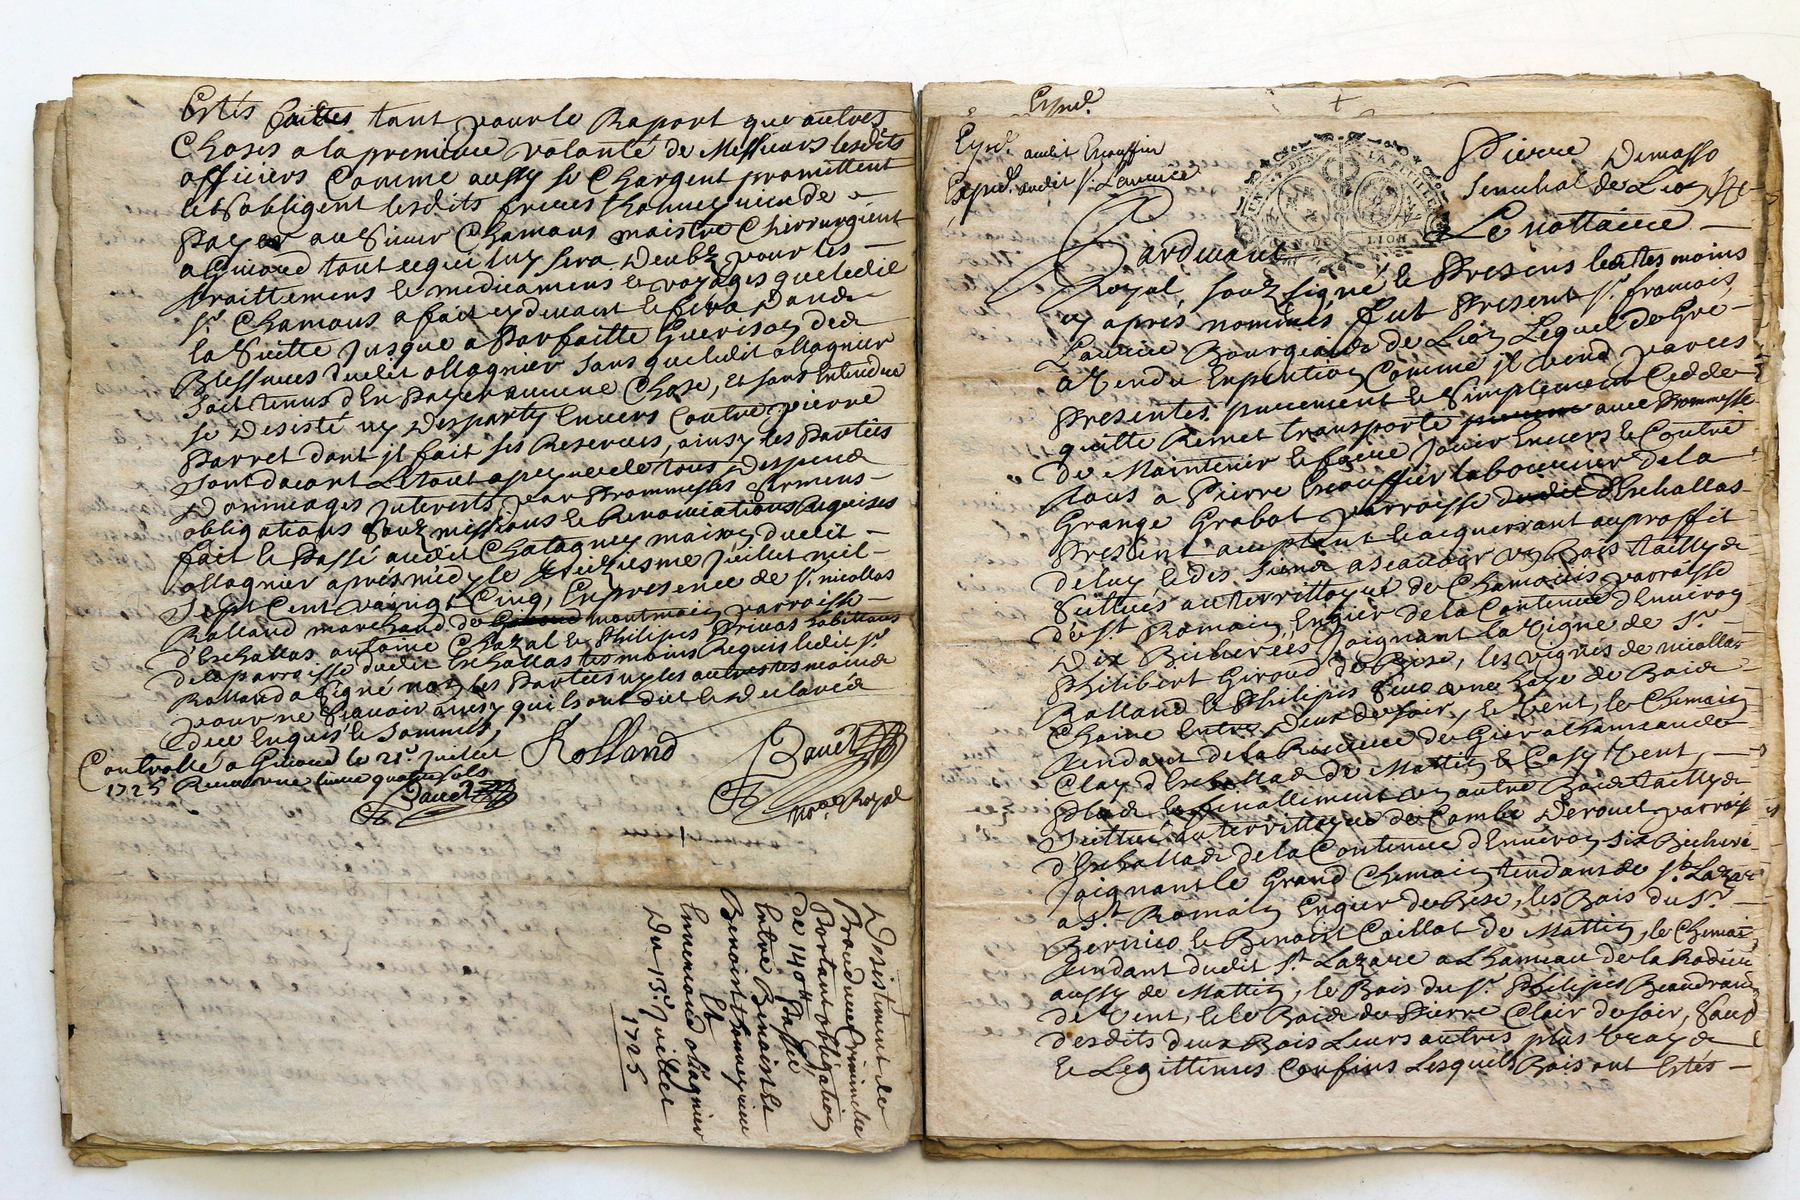 Estés faittes tant pour le Raport que autres
Choses a la premiere volanté de Messieurs lesdits
officiers Comme aussy se Chargent promittent
et Sobligent lesdits freres
Payer au Sieur Chamous maistre Chirrurgient
a Givord tout ce qui luy sera deubz pour les
traittemens et medicamens et voyages que ledit
Sr. Chamous a fait cy devant et fera dans
la Suitte Jusque a Parfaitte Guerison des
Blessures dudit ollagnier sans que ledit ollagnier
soit tenus d'En Payer aucune Chose, Et sans Entendre
se desisté ny despartÿ Envers Contre pierre
Parret dont jl fait ses Reserves, ainsy les Parties
sont dacort Et tout a peyne de tous despens
dommages Interests par Prommesses Sermens
obligations Soubzmissions et Renonciations Requises
fait et Passé audit Chatagney maison dudit
ollagnier apres midy le Juillet mil
Sept Cent vaingt Cinq, En presence de Sr. nicollas
Rolland marchand de montmain parroisse
d'Eschallas antoine Chazal et Philipes Privas habittans
de la parroisse dudit Eschallas tesmoins Requis ledit Sr.
Rolland a Signé non les Parties ny les autres tesmoins
pour ne Scavoir ainsy qu'ils ont dit et declarés
de ce Enquis et Sommés,
Controllé a Givord le 21e. Juillet
1725 Receu une livre quatre sols
Rolland
Bauet
Bauet
nore. Royal
Desistiment de
Procedure Criminelle
Portant obligation
de 140tt Passée
Entre Benoiste
Benoist
Et
Ennemond ollagnier
Du 13e. Juillet
1725
Exped.
Exped. audit Escoffier
Exped. audit Sr. Laurice
GEN. DE LION
Pierre Demasso
Senechal de Lion
Le nottaire
Pardevant
Royal, soubzsigné et Presens les tesmoins
cy apres nommés fut Present Sr. françois
Laurice Bourgeois de Lion Lequel de Gre
a Vendu Comme jl vend par ces
Presentes purement et Simplement Cedde
quitte Remet transporte avec Prommesse
de Maintenir et faire Jouir Envers et Contre
tous a Pierre Escoffier laboureur de la
Grange Grabot parroisse d'Eschallas
Present acceptant et acquerrant au proffit
de luy et des Siens a scavoir un Bois tailly
Scittués au territtoyre de Chamouis parroisse
de St. Romain En gier de la Contenue d'Environ
dix Bicherées Joignant la vigne de Sr.
Philibert Giroud de Bise, les vignes de nicollas
Rolland et Philipes une haye de Bois
Chaine Entre deux de soir, et vent, le Chemain
tendant de la Riviere de Gier a
Clay d'Eschallas de Mattin et Vent,
Plus et finallement un autre Bois tailly
Scittué au territtoyre de Combe parroisse
d'Eschallas de la Contenue d'Environ six Bicherée
Joignant le Grand Chemain tendant de St. Lazare
a St. Romain En gier de Bise, les Bois du Sr.
et Benoist Caillot de Mattin, le Chemain
tendant dudit St. Lazare a Lhameau de la Rodiere
aussy de Mattin, le Bois du Sr. Philipes
de Vent, et le Bois de Pierre Clair de soir, Sauf
desdits deux Bois Leurs autres plus vrays
et Legittimes Confins Lesquels Bois ont Estés